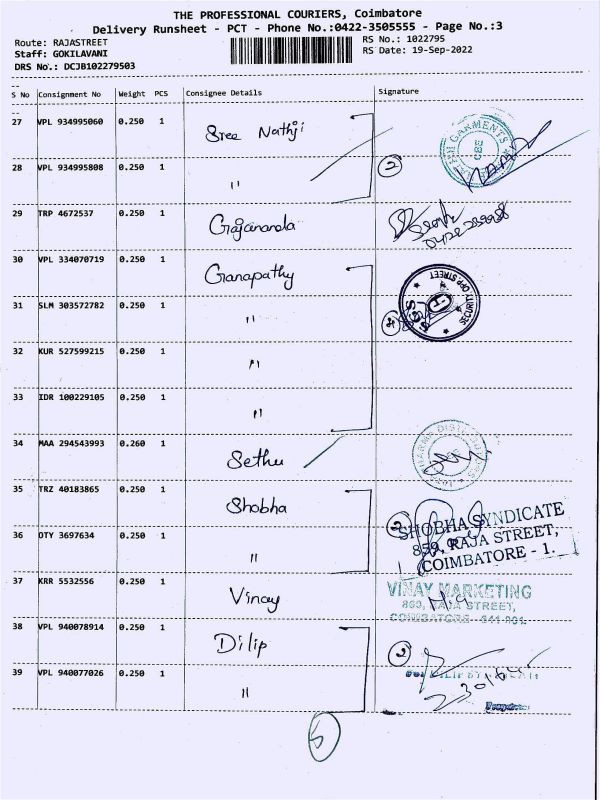 THE PROFESSIONAL COURIERS, Coimbatore
Delivery Runsheet - PCT - Phone No.:0422-3505555 - Page No.:3
Route: RAJASTREET
RS No.: 1022795
Staff: GOKILAVANI
RS Date: 19-Sep-2022
DRS No.: DCJB102279503
S No Consignment No Weight PCS Consignee Details Signature
27 VPL 934995060 0.250 1 Sree Nathji
28 VPL 934995808 0.250 1 " 2
GARMENTS
CBE
29 TRP 4672537 0.250 1 Gajananda
30 VPL 334070719 0.250 1 Ganapathy
31 SLM 303572782 0.250 1 " 4
SECURITY OPP. STREET
32 KUR 527599215 0.250 1 "
33 IDR 100229105 0.250 1 "
34 MAA 294543993 0.260 1 Sethu
35 TRZ 40183865 0.250 1 Shobha
36 OTY 3697634 0.250 1 " 2
SHOBHA SYNDICATE
859, RAJA STREET,
COIMBATORE - 1.
37 KRR 5532556 0.250 1 Vinay
VINAY MARKETING
860, RAJA STREET,
COIMBATORE - 641 001.
38 VPL 940078914 0.250 1 Dilip 2
39 VPL 940077026 0.250 1 "